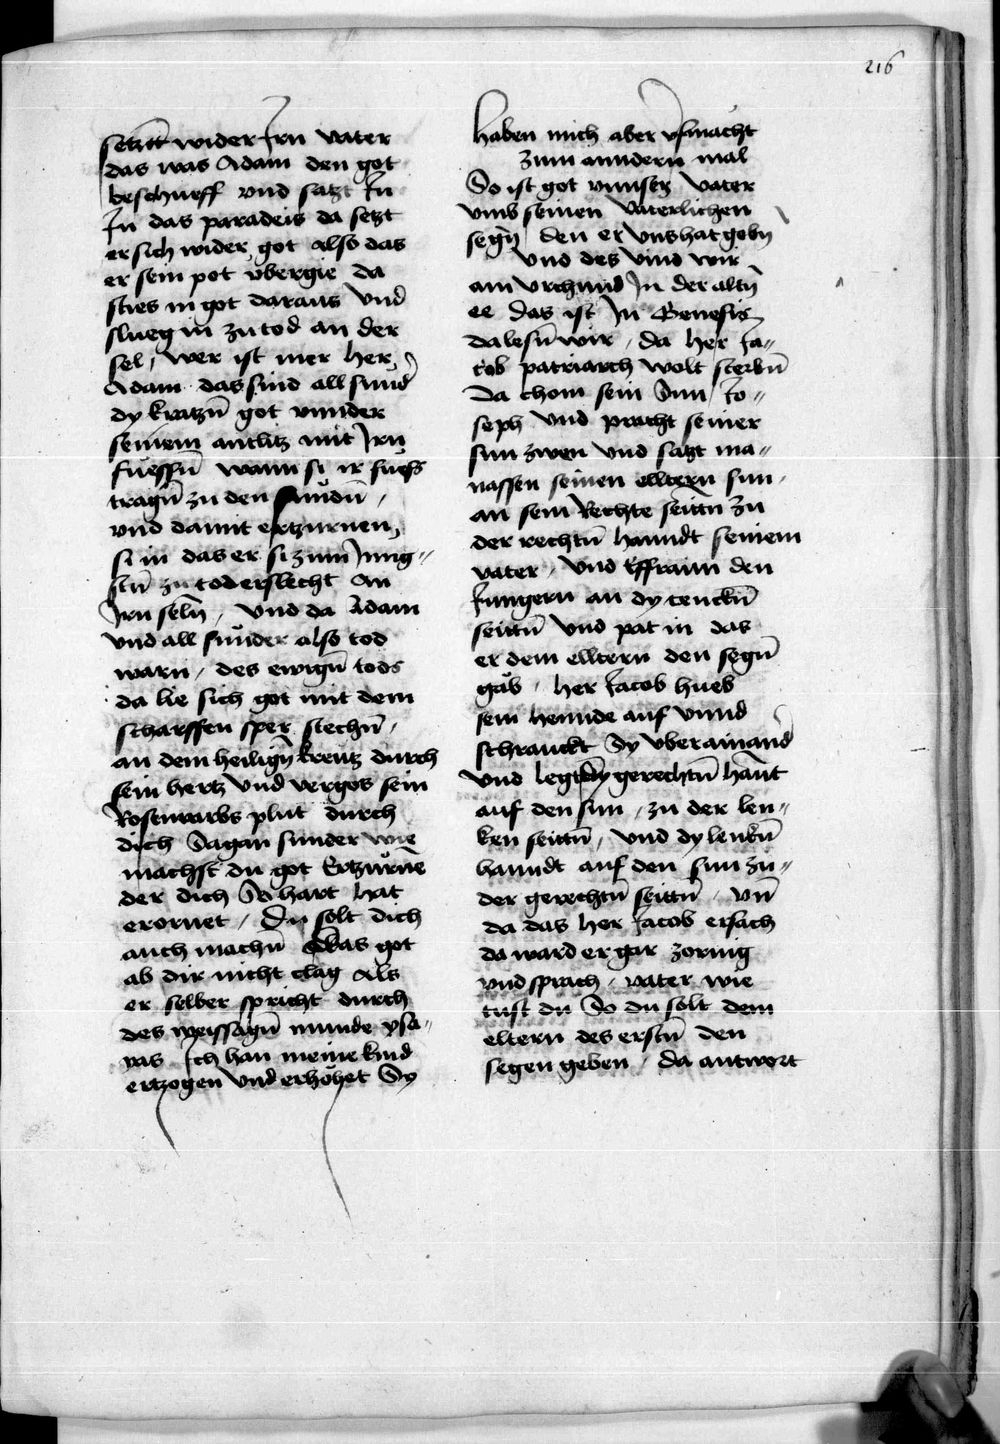 216
setztt wider Irn vater
das was Adam den got
beschueff vnd satzt In
In das paradeis da setzt
er sich wider got also das
er sein pot vbergie da
sties in got daraus vnd
slueg in zu tod an der
sel, wer ist mer her
Adam das sind all sund̄
dy kratzn̄ got vnnder
seinem antlitz mit Irn̄
fuessn̄ wann si ir fuess
tragn̄ zu den sundn̄,
vnd damit ertzurnen
si in das er si zum Jung=
stn̄ zu tod erslecht an
Irn seln̄, vnd da Adam
vnd all sunder also tod
warn, des ewign̄ tods
da lie sich got mit dem
scharffen sper stechn̄,
an dem heilign̄ kreutz durch
sein hertz vnd vergos sein
Rosenuarbs plut durch
dich Sagan sunder wie
machst du got Ertzurnē
der dich So hart hat
erornet, Du solt dich
auch machn̄ Das got
ab dir nicht clag Als
er selber spricht durch
des weissagn̄ munde ysa=
ias Ich han meine kind
ertzogen vnd erhöhet Sy
haben mich aber v̄smacht
zum anndern mal
So ist got vnnser vater
vmb seinen vaterlichen
segn̄ den er vns hat gebn̄
vnd des vind wir
ain vrchund In der altn̄
ee das ist In Genesis
da lesn̄ wir, da her Ja=
cob patriarch wolt sterbn̄
Da chom sein Sun Jo=
seph vnd pracht seiner
sun zwen vnd satzt ma=
nassen seinen elltern sun,
an sein Rechte seittn zu
der rechtn̄ hanndt seinem
vater, vnd Effraim den
Jungern an dy tenckn̄
seittn̄ vnd pat in das
er dem elltern den segn̄
gab, her Jacob hueb
sein hennde auf vnnd
schranckt Sy vber ainand̄
vnd legt dy gerechtn̄ hannt
auf den sun, zu der len=
ken seittn̄, vnd dy lenkn̄
hanndt auf den sun zu=
der gerechtn̄ seittn̄, vn̄
da das her Jacob ersach
da ward er gar zornig
vnd sprach, vater wie
tust du So du solt dem
eltern des erstn̄ den
segen geben, da antwort